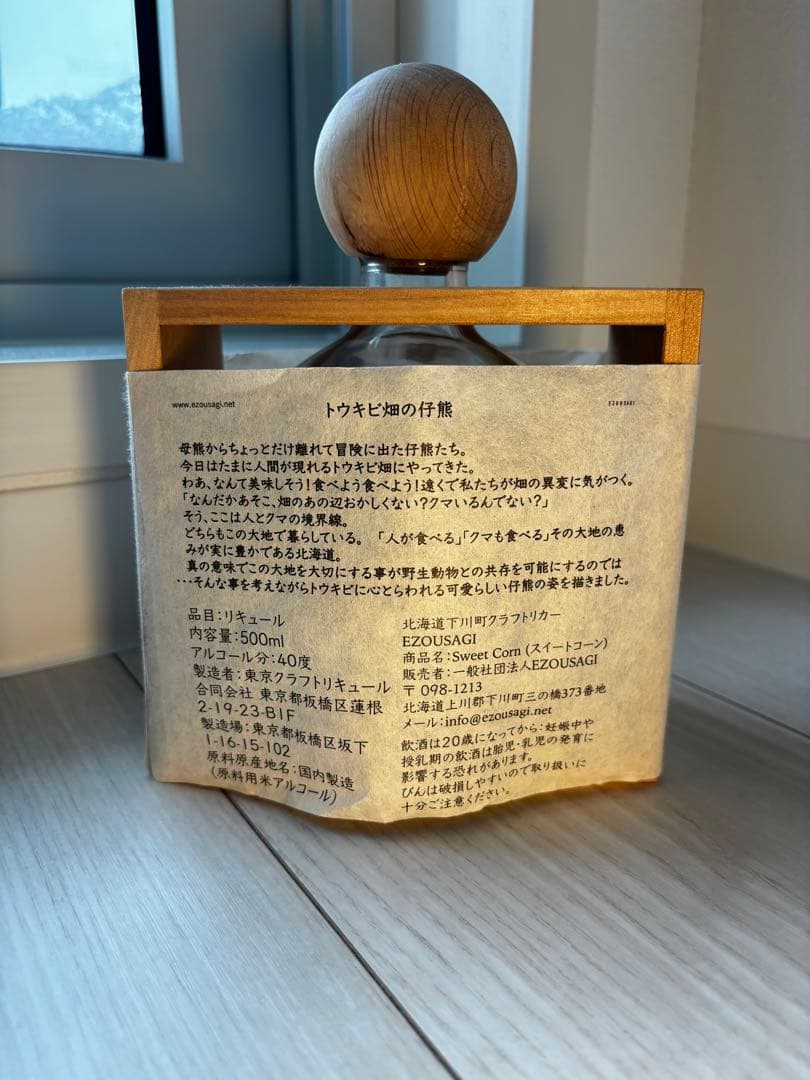 www.ezousagi.net
トウキビ畑の仔熊
EZOUSAGI
母熊からちょっとだけ離れて冒険に出た仔熊たち。
今日はたまに人間が現れるトウキビ畑にやってきた。
わあ、なんて美味しそう!食べよう食べよう!遠くで私たちが畑の異変に気がつく。
「なんだかあそこ、畑のあの辺おかしくない?クマいるんでない?」
そう、ここは人とクマの境界線。
どちらもこの大地で暮らしている。「人が食べる」「クマも食べる」その大地の恵
みが実に豊かである北海道。
真の意味でこの大地を大切にする事が野生動物との共存を可能にするのでは
…そんな事を考えながらトウキビに心とらわれる可愛らしい仔熊の姿を描きました。
品目:リキュール
内容量:500ml
アルコール分:40度
製造者:東京クラフトリキュール
合同会社 東京都板橋区蓮根
2-19-23-B1F
製造場:東京都板橋区坂下
1-16-15-102
原料原産地名:国内製造
(原料用米アルコール)
北海道下川町クラフトリカー
EZOUSAGI
商品名:Sweet Corn (スイートコーン)
販売者:一般社団法人EZOUSAGI
〒 098-1213
北海道上川郡下川町三の橋373番地
メール:info@ezousagi.net
飲酒は20歳になってから:妊娠中や
授乳期の飲酒は胎児・乳児の発育に
影響する恐れがあります。
びんは破損しやすいので取り扱いに
十分ご注意ください。